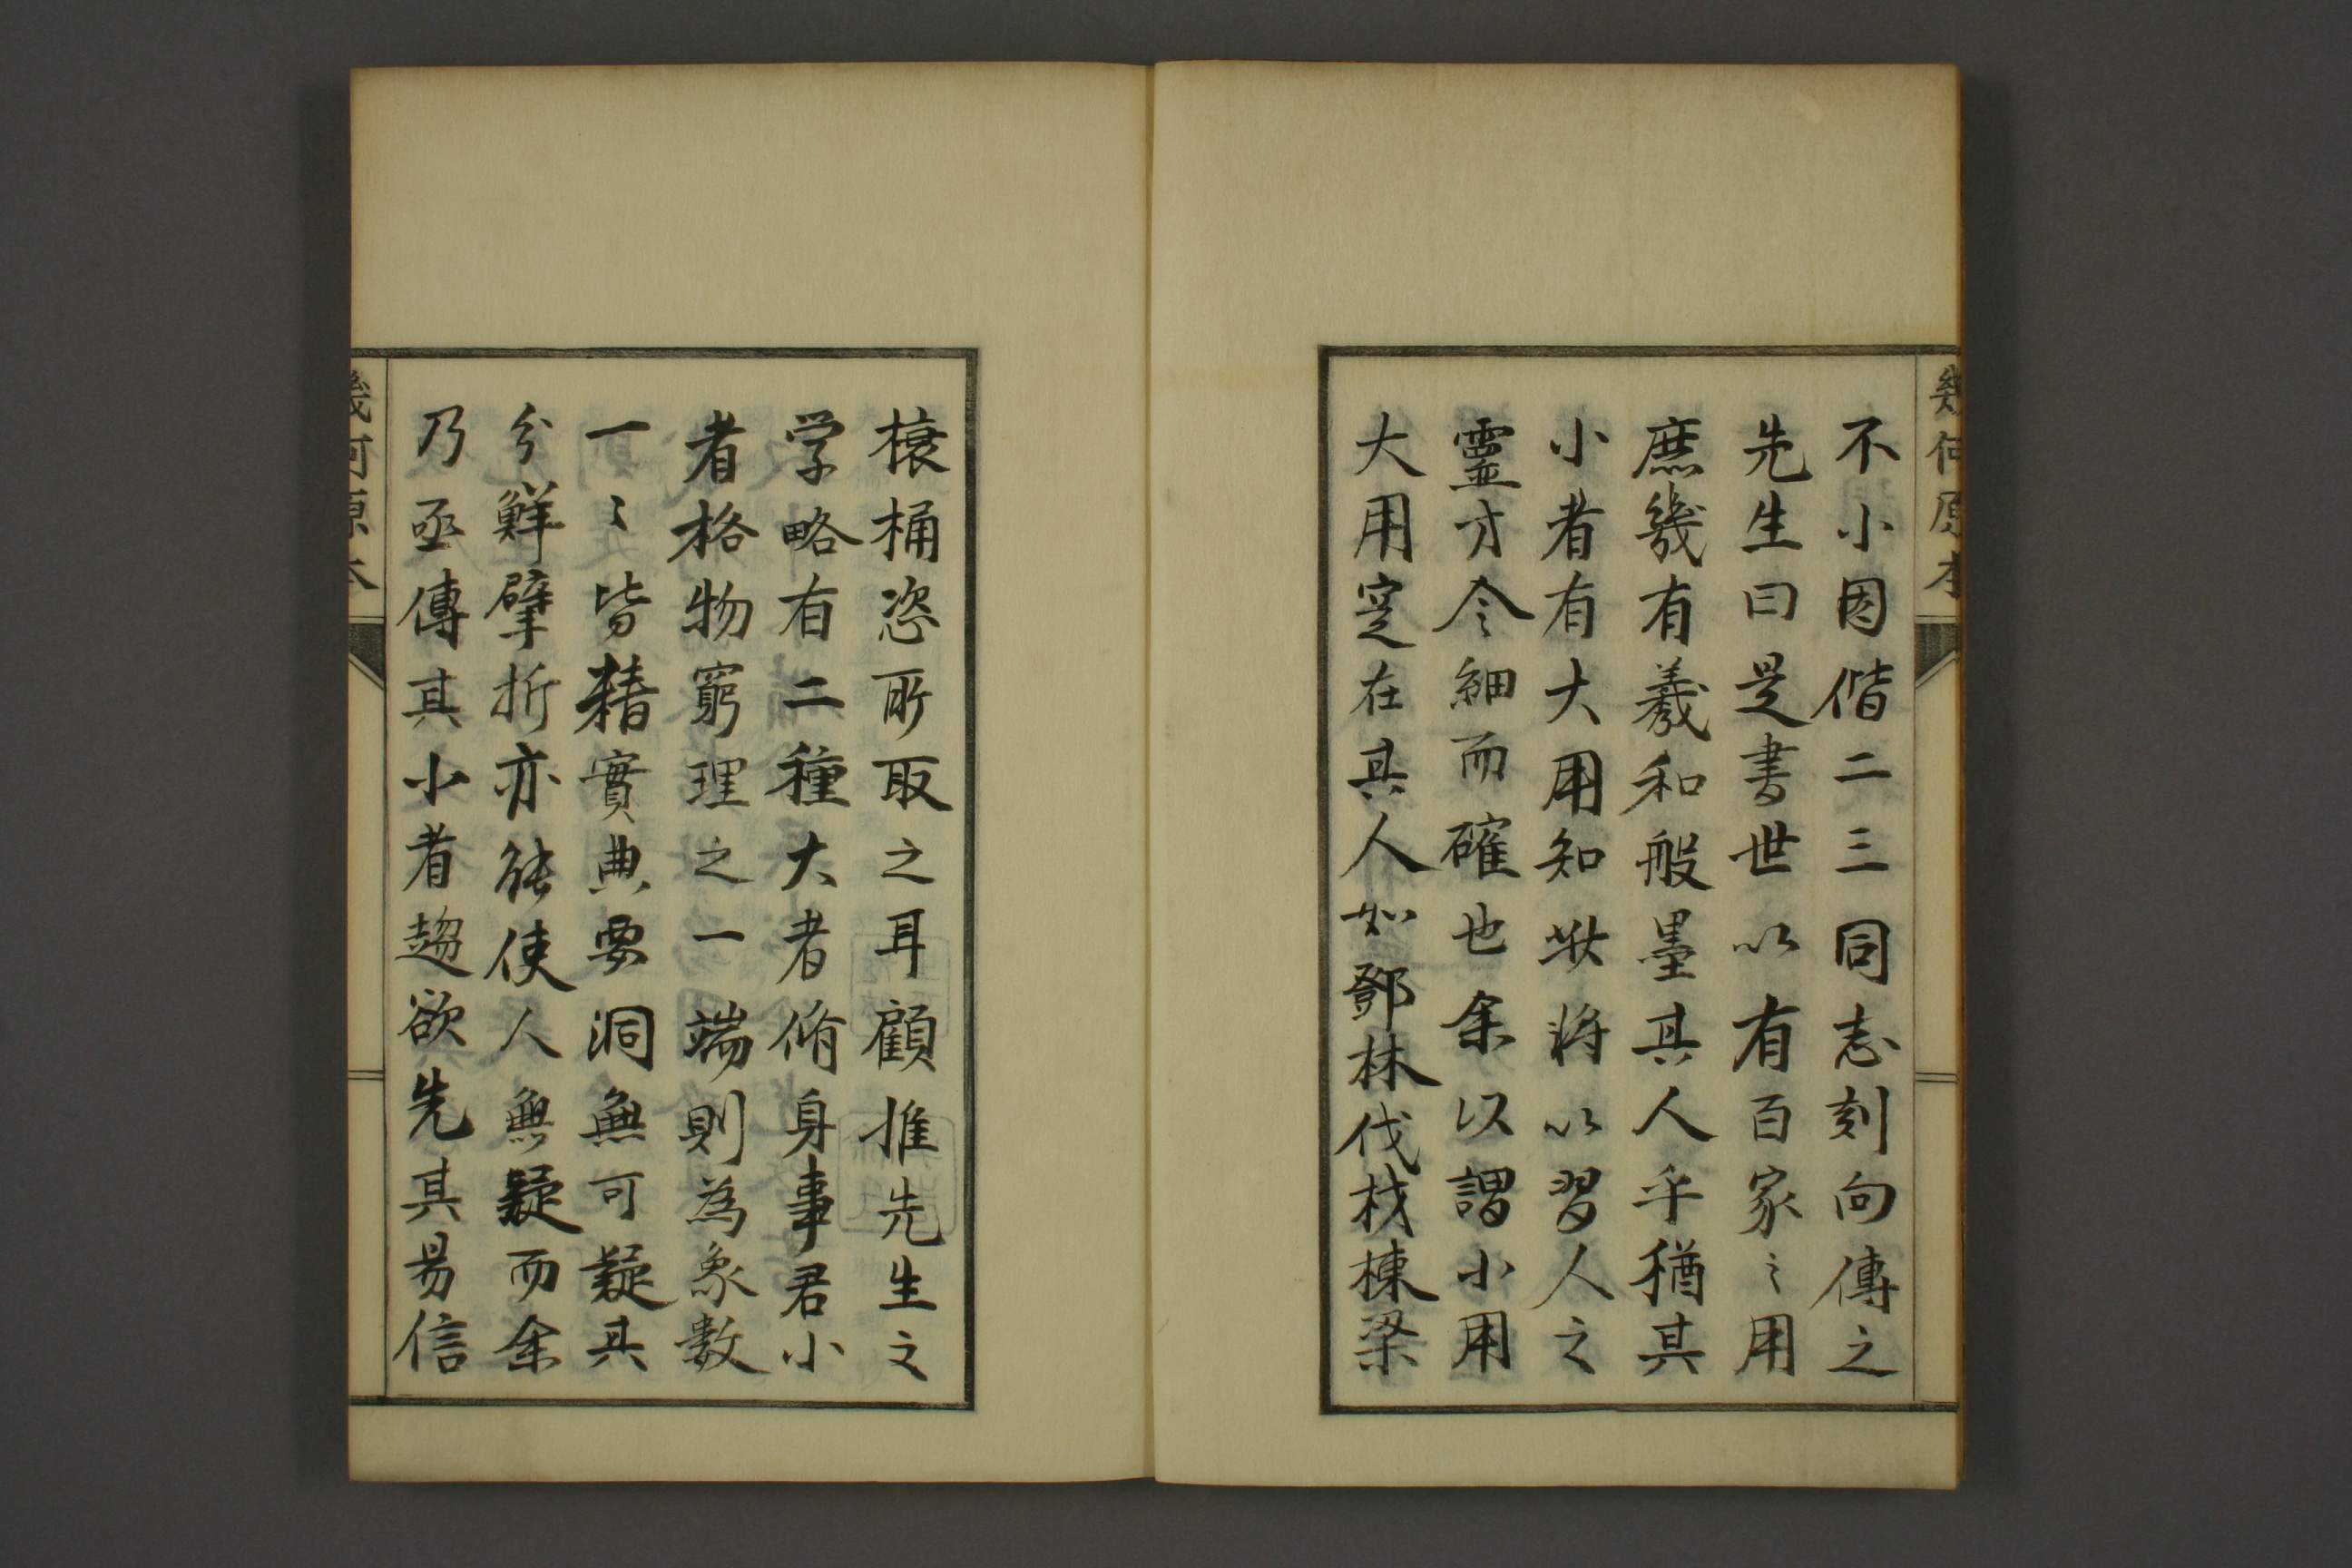 幾何原本
不小因偕二三同志刻向傳之
先生曰是書世以有百家〻用
庶幾有羲和般墨其人乎猶其
小者有大用知欤將以習人之
靈才令細而確也余以謂小用
大用寔在其人如鄧林伐材棟梁
榱桷恣所取之耳顧推先生之
学略有二種大者脩身事君小
者格物窮理之一端則為象數
一〻皆精實典要洞無可疑其
分觧擘折亦能使人無疑而余
乃亟傳其小者趨欲先其易信
幾何原本